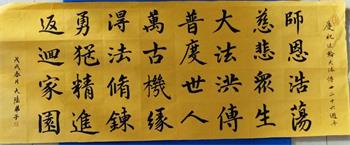 慶祝法輪大法傳世二十六週年
師恩浩蕩
慈悲眾生
大法洪傳
普度世人
萬古機緣
得法脩鍊
勇猛精進
返迴家園
戊戌春月 大陸弟子